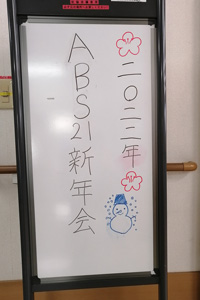 二〇二二年
ABS21新年会